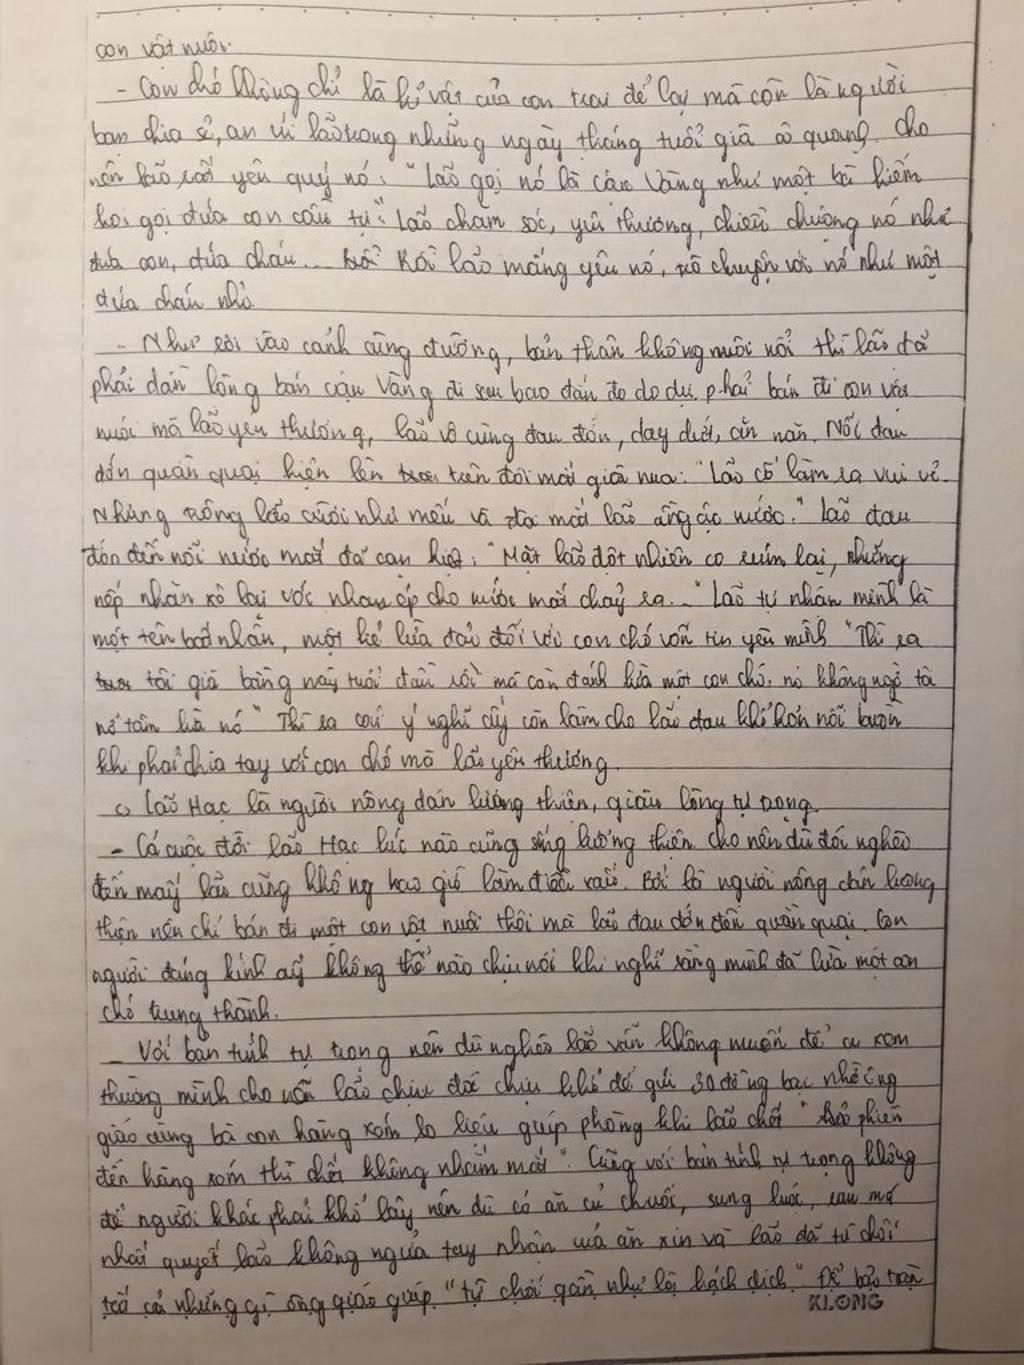 con vật nuôi.
- Con chó không chỉ là kỉ vật của con trai để lại mà còn là người
bạn chia sẻ, an ủi lão trong những ngày tháng tuổi già cô quạnh. Cho
nên lão rất yêu quý nó: "Lão gọi nó là cậu Vàng như một bà hiếm
hoi gọi đứa con cầu tự". Lão chăm sóc, yêu thương, chiều chuộng nó như
đứa con, đứa cháu... Rồi lão mắng yêu nó, trò chuyện với nó như một
đứa cháu nhỏ.
- Như rơi vào cảnh cùng đường, bản thân không nuôi nổi thì lão đã
phải dằn lòng bán cậu Vàng đi sau bao đắn đo do dự. phải bán đi con vật
nuôi mà lão yêu thương, lão vô cùng đau đớn, day dứt, ăn năn. Nỗi đau
đớn quằn quại hiện lên trên đôi mắt già nua: "Lão cố làm ra vui vẻ.
Nhưng trông lão cười như mếu và đôi mắt lão ầng ậc nước." Lão đau
đớn đến nỗi nước mắt đã cạn kiệt: "Mặt lão đột nhiên co rúm lại, những
nếp nhăn xô lại với nhau ép cho nước mắt chảy ra..." Lão tự nhận mình là
một tên bất nhân, một kẻ lừa đảo đối với con chó vốn tin yêu mình "Thì ra
tôi già bằng này tuổi đầu rồi mà còn đánh lừa một con chó. nó không ngờ tôi
nỡ tâm lừa nó" Thì ra cái ý nghĩ ấy còn làm cho lão đau khổ hơn nỗi buồn
khi phải chia tay với con chó mà lão yêu thương.
c, Lão Hạc là người nông dân lương thiện, giàu lòng tự trọng.
- Cả cuộc đời lão Hạc lúc nào cũng sống lương thiện cho nên dù đói nghèo
đến mấy lão cũng không bao giờ làm điều xấu. Bởi là người nông dân lương
thiện nên chỉ bán đi một con vật nuôi thôi mà lão đau đớn đến quằn quại. Con
người đáng kính ấy không thể nào chịu nổi khi nghĩ rằng mình đã lừa một con
chó trung thành.
- Với bản tính tự trọng nên dù nghèo lão vẫn không muốn để ai xem
thường mình cho nên lão chịu đói chịu khổ để gửi 30 đồng bạc nhờ ông
giáo cùng bà con hàng xóm lo liệu giúp phòng khi lão chết "để phiền
đến hàng xóm thì chết không nhắm mắt". Cũng với bản tính tự trọng không
để người khác phải khổ lây nên dù có ăn củ chuối, sung luộc, rau má
nhất quyết lão không ngửa tay nhận của ăn xin và lão đã từ chối
tất cả những gì ông giáo giúp "từ chối gần như là hách dịch". Để bảo toàn
KLONG